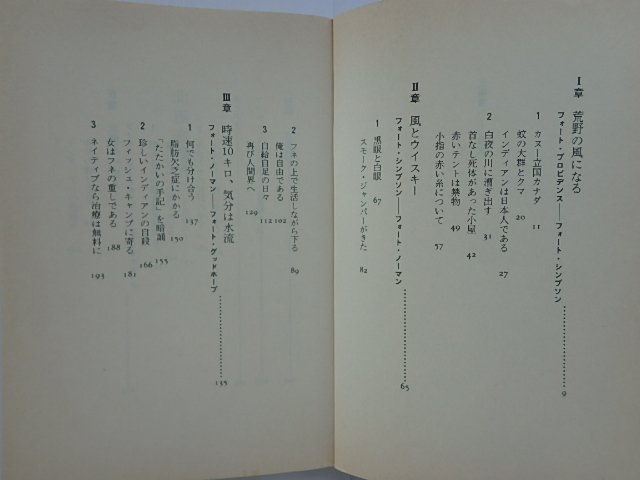 I章 荒野の風になる
フォート・プロビデンス――フォート・シンプソン……………………9
1 カヌー立国カナダ 11
蚊の大群とクマ 20
インディアンは日本人である 27
2 白夜の川に漕ぎ出す 31
首なし死体があった小屋 42
赤いテントは禁物 49
小指の赤い糸について 57
II章 風とウイスキー
フォート・シンプソン――フォート・ノーマン……………………65
1 黒眼と白眼 67
スモーク・ジャンパーがきた 82
2 フネの上で生活しながら下る 89
俺は自由である 102
3 自給自足の日々 112
再び人間界へ 129
III章 時速10キロ、気分は水流
フォート・ノーマン――フォート・グッドホープ……………………135
1 何でも分け合う 137
脂肪欠乏症にかかる 150
「たたかいの手記」を暗誦 155
2 珍しいインディアンの自殺 166
フィッシュ・キャンプに寄る 181
女はフネの重しである 188
3 ネイティブなら治療は無料に 193